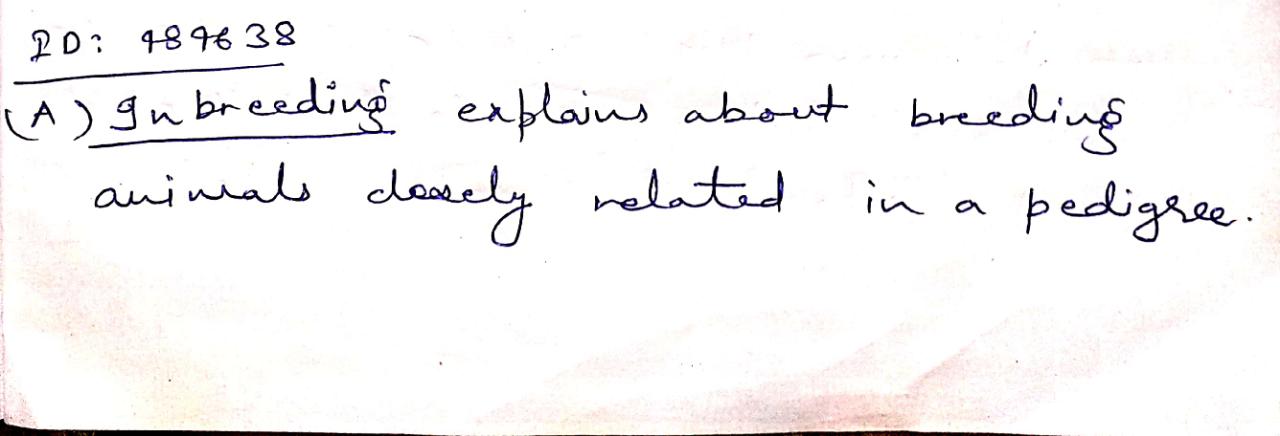 ID: 489638
(A) Inbreeding explains about breeding
animals closely related in a pedigree.